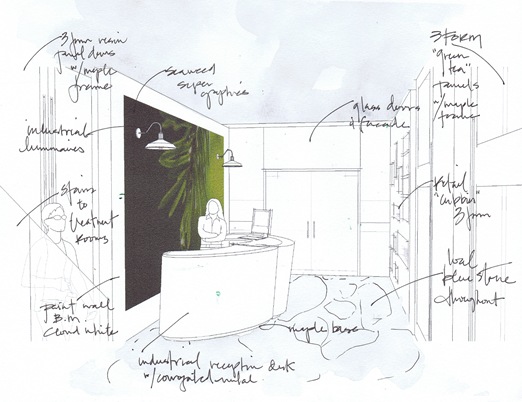 3 form resin
panel doors
w/ maple
frame
seaweed
super
graphics
industrial
luminaires
stairs
to
treatment
rooms
paint wall
B.M.
cloud white
industrial reception desk
w/ corrugated metal
maple base
glass doors
& facade
3 FORM
"green
tea"
panels
w/ maple
frame
retail
"cubbies"
3 form
local
blue stone
throughout